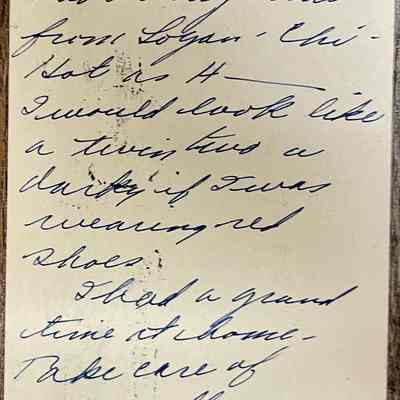 from Logan - Chi -
Hot as H——
I would look like
a twin two a
darky if I was
wearing red
shoes.
I had a grand
time at home -
Take care of